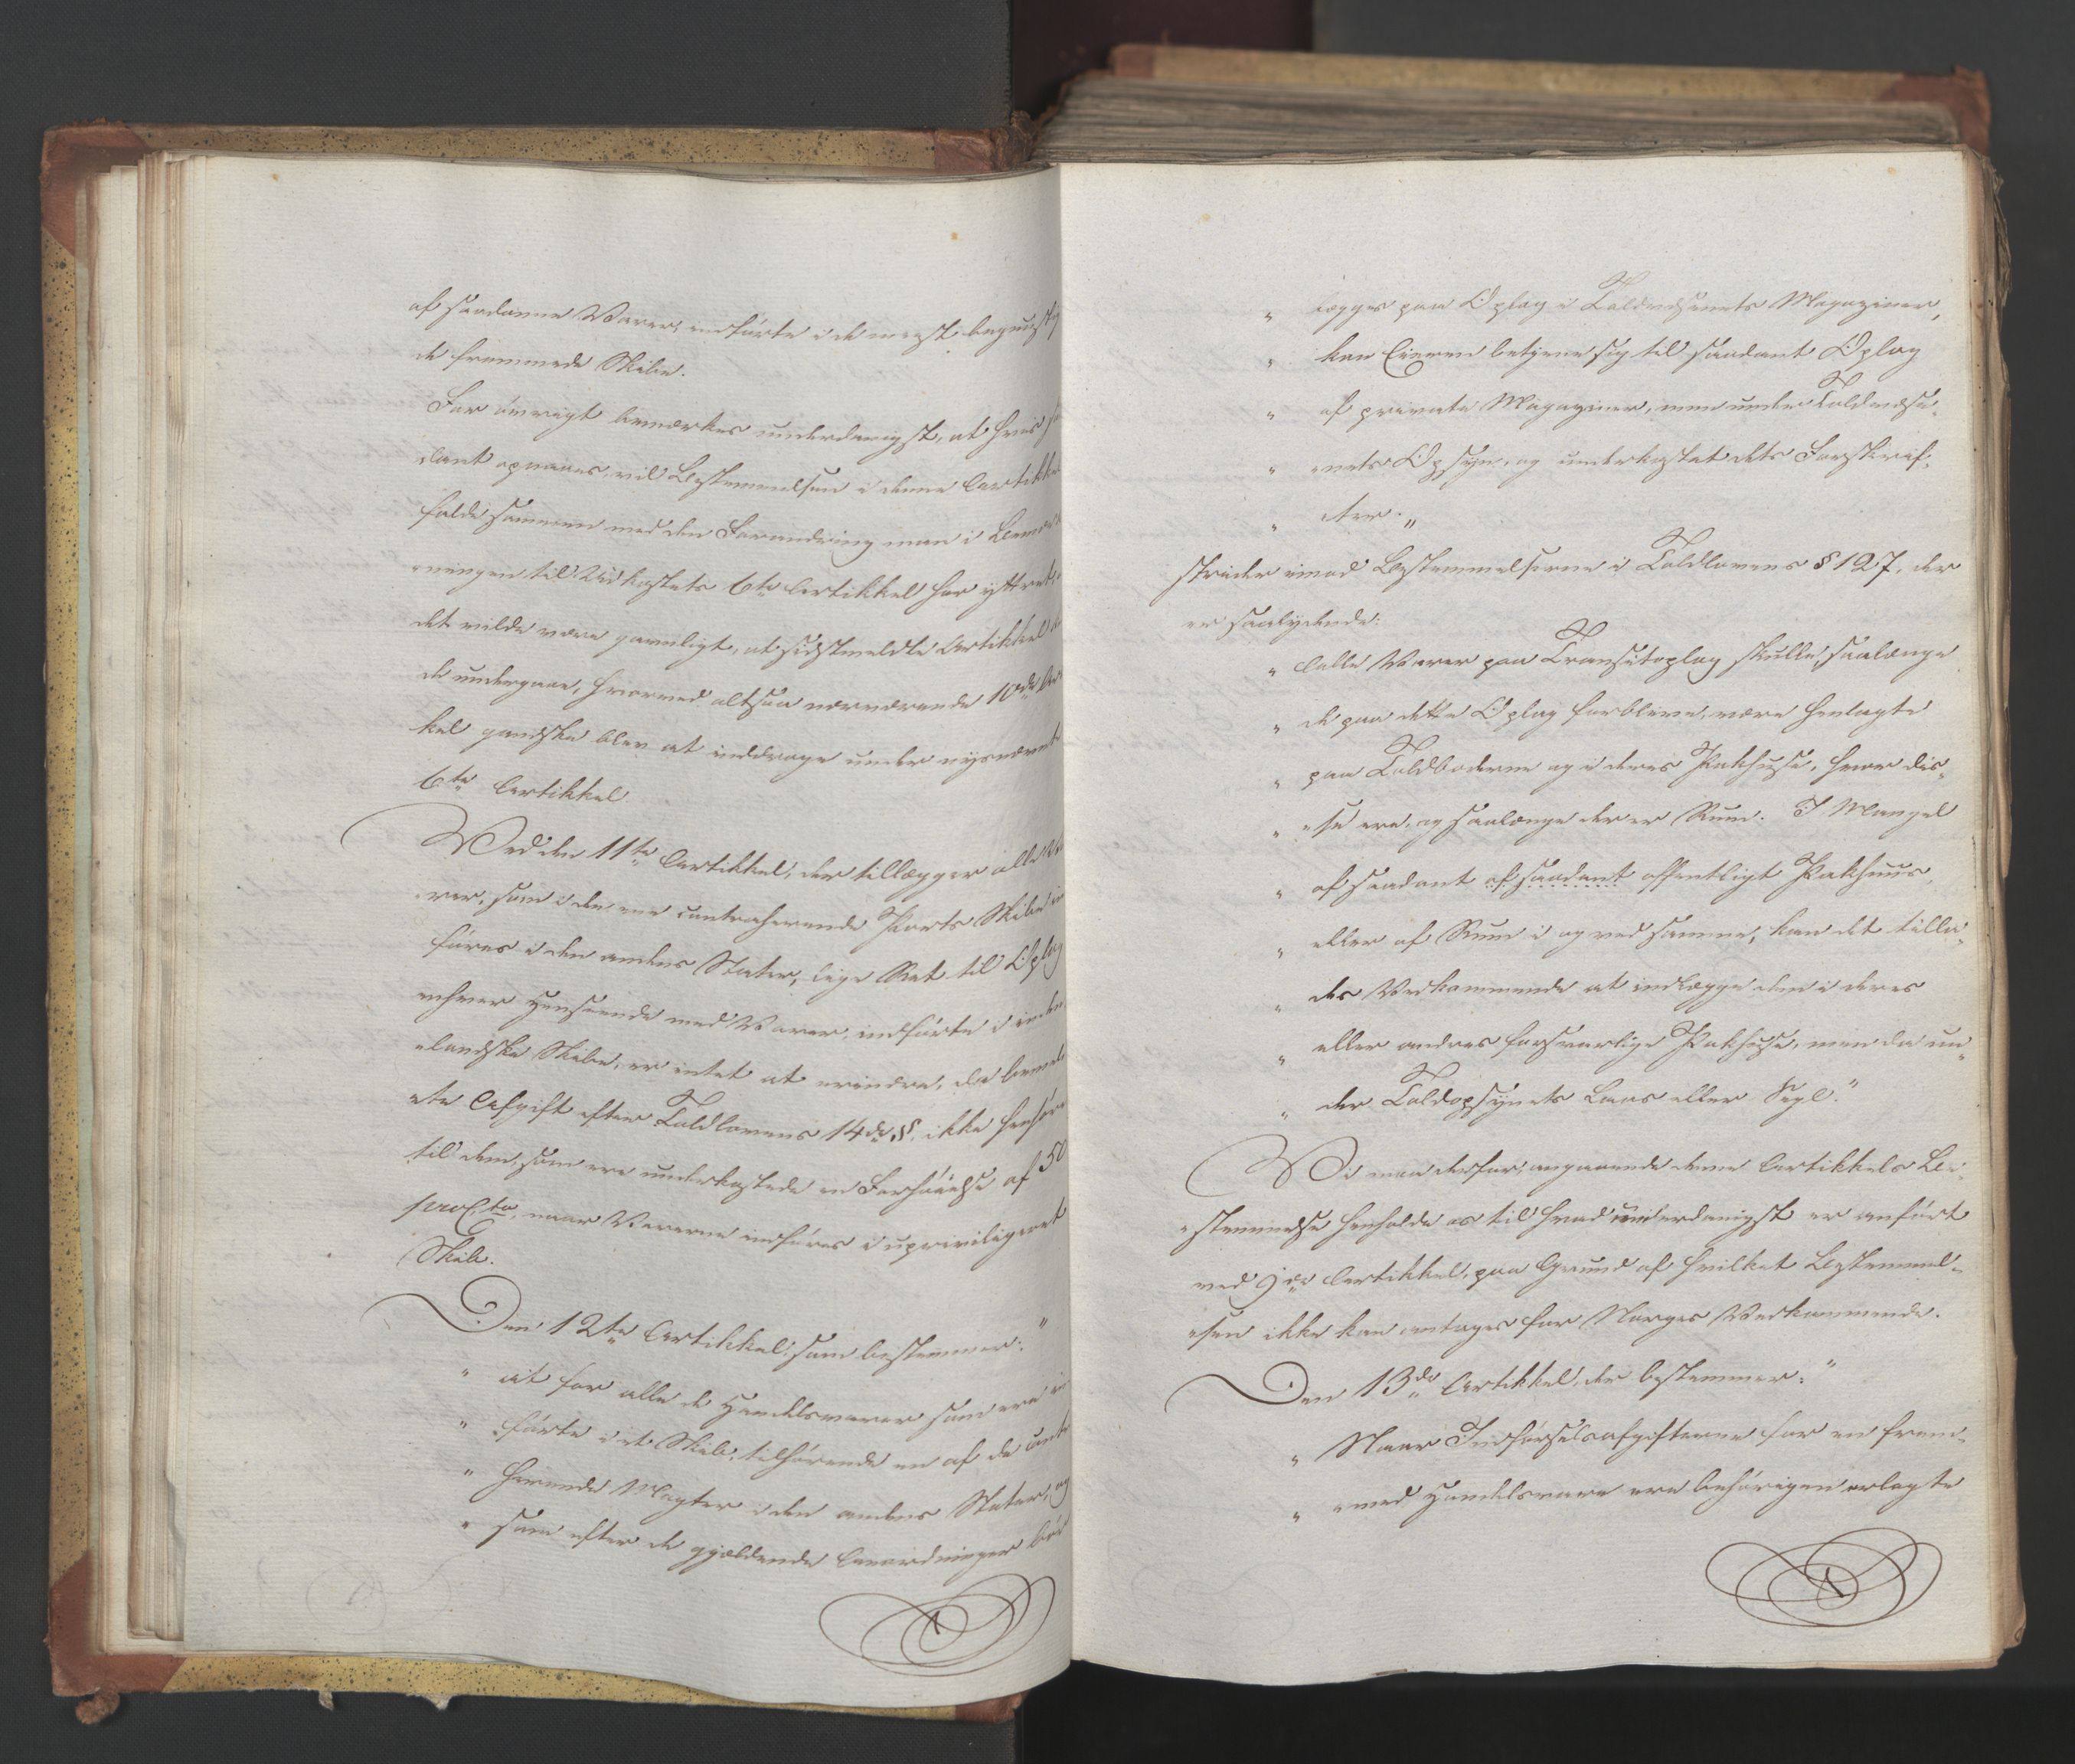 af saadanne Varer, indførte i de meest begunstig
de fremmede Skibe.
For øvrigt bemærkes underdanigst, at hvis
dant opnaaes, vil Bestemmelsen i denne Artikkel
falde sammen med den Forandring man i Bemærk
ningen til Udkastets 6te Artikkel har yttret,
det vilde være gavnligt, at sidstmeldte Artikkel
de undergaae, hvorved altsaa nærværende 10de Ar
kel gandske blev at inddrage under nysnævnte
6te Artikkel.
Ved den 11te Artikkel, der tillægger alle Va
rer, som i den ene contraherende Parts Skibe in
føres i den andens Stater, lige Ret til Oplag
enhver Henseende med Varer, indførte i inden
landske Skibe, er intet at erindre, da bemeld
te Afgift efter Toldlovens 14de §, ikke henføre
til dem, som ere underkastede en Forhøielse af 50
proCto, naar Varerne indføres i upriviligeret
Skib.
Den 12te Artikkel, som bestemmer: "
" at for alle de Handelsvarer som ere in
" førte i et Skib, tilhørende en af de contra
" herende Magter i den andens Stater, og
" som efter de gjældende Anordninger bør
" lægges paa Oplag i Toldvæsenets Magaziner,
" kan Eieren betjene sig til saadant Oplag
" af private Magaziner, men under Toldvæse-
" nets Opsyn, og underkastet dets Forskrif-
" ter. "
strider imod Bestemmelserne i Toldlovens § 127, der
er saalydende:
" Alle Varer paa Transitoplag skulle, saalænge
" de paa dette Oplag forblive, være henlagte
" paa Toldboderne og i deres Pakhuse, hvor dis-
" se ere, og saalænge der er Rum. I Mangel
" af saadant af saadant offentligt Pakhuus,
" eller af Rum i og ved samme, kan det tilla-
" des Vedkommende at indlægge dem i deres
" eller andres forsvarlige Pakhuse, men da un-
" der Toldopsynets Laas eller Segl."
Vi maa derfor, angaaende denne Artikkels Be-
stemmelse henholde os til hvad underdanigst er anført
ved 9de Artikkel, paa Grund af hvilket Bestemmel-
sen ikke kan antages for Norges Vedkommende.
Den 13de Artikkel, der bestemmer: "
" Naar Indførselsafgifterne for en frem-
" med Handelsvare ere behørigen erlagte